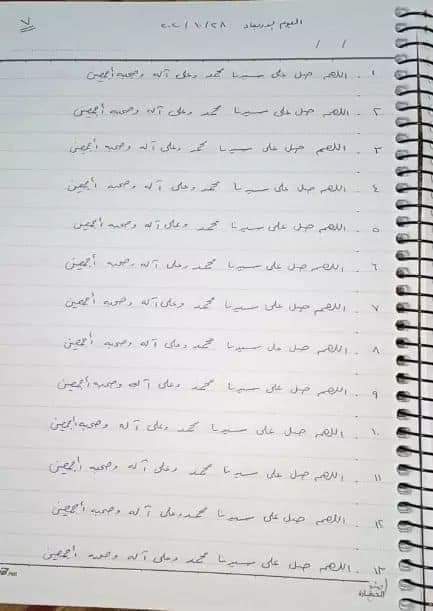 ٧
اليوم ٢٠٢١/١٠/٢٨
/ /
١. اللهم صل على سيدنا محمد وعلى آله وصحبه أجمعين
٢. اللهم صل على سيدنا محمد وعلى آله وصحبه أجمعين
٣. اللهم صل على سيدنا محمد وعلى آله وصحبه أجمعين
٤. اللهم صل على سيدنا محمد وعلى آله وصحبه أجمعين
٥. اللهم صل على سيدنا محمد وعلى آله وصحبه أجمعين
٦. اللهم صل على سيدنا محمد وعلى آله وصحبه أجمعين
٧. اللهم صل على سيدنا محمد وعلى آله وصحبه أجمعين
٨. اللهم صل على سيدنا محمد وعلى آله وصحبه أجمعين
٩. اللهم صل على سيدنا محمد وعلى آله وصحبه أجمعين
١٠. اللهم صل على سيدنا محمد وعلى آله وصحبه أجمعين
١١. اللهم صل على سيدنا محمد وعلى آله وصحبه أجمعين
١٢. اللهم صل على سيدنا محمد وعلى آله وصحبه أجمعين
١٣. اللهم صل على سيدنا محمد وعلى آله وصحبه أجمعين